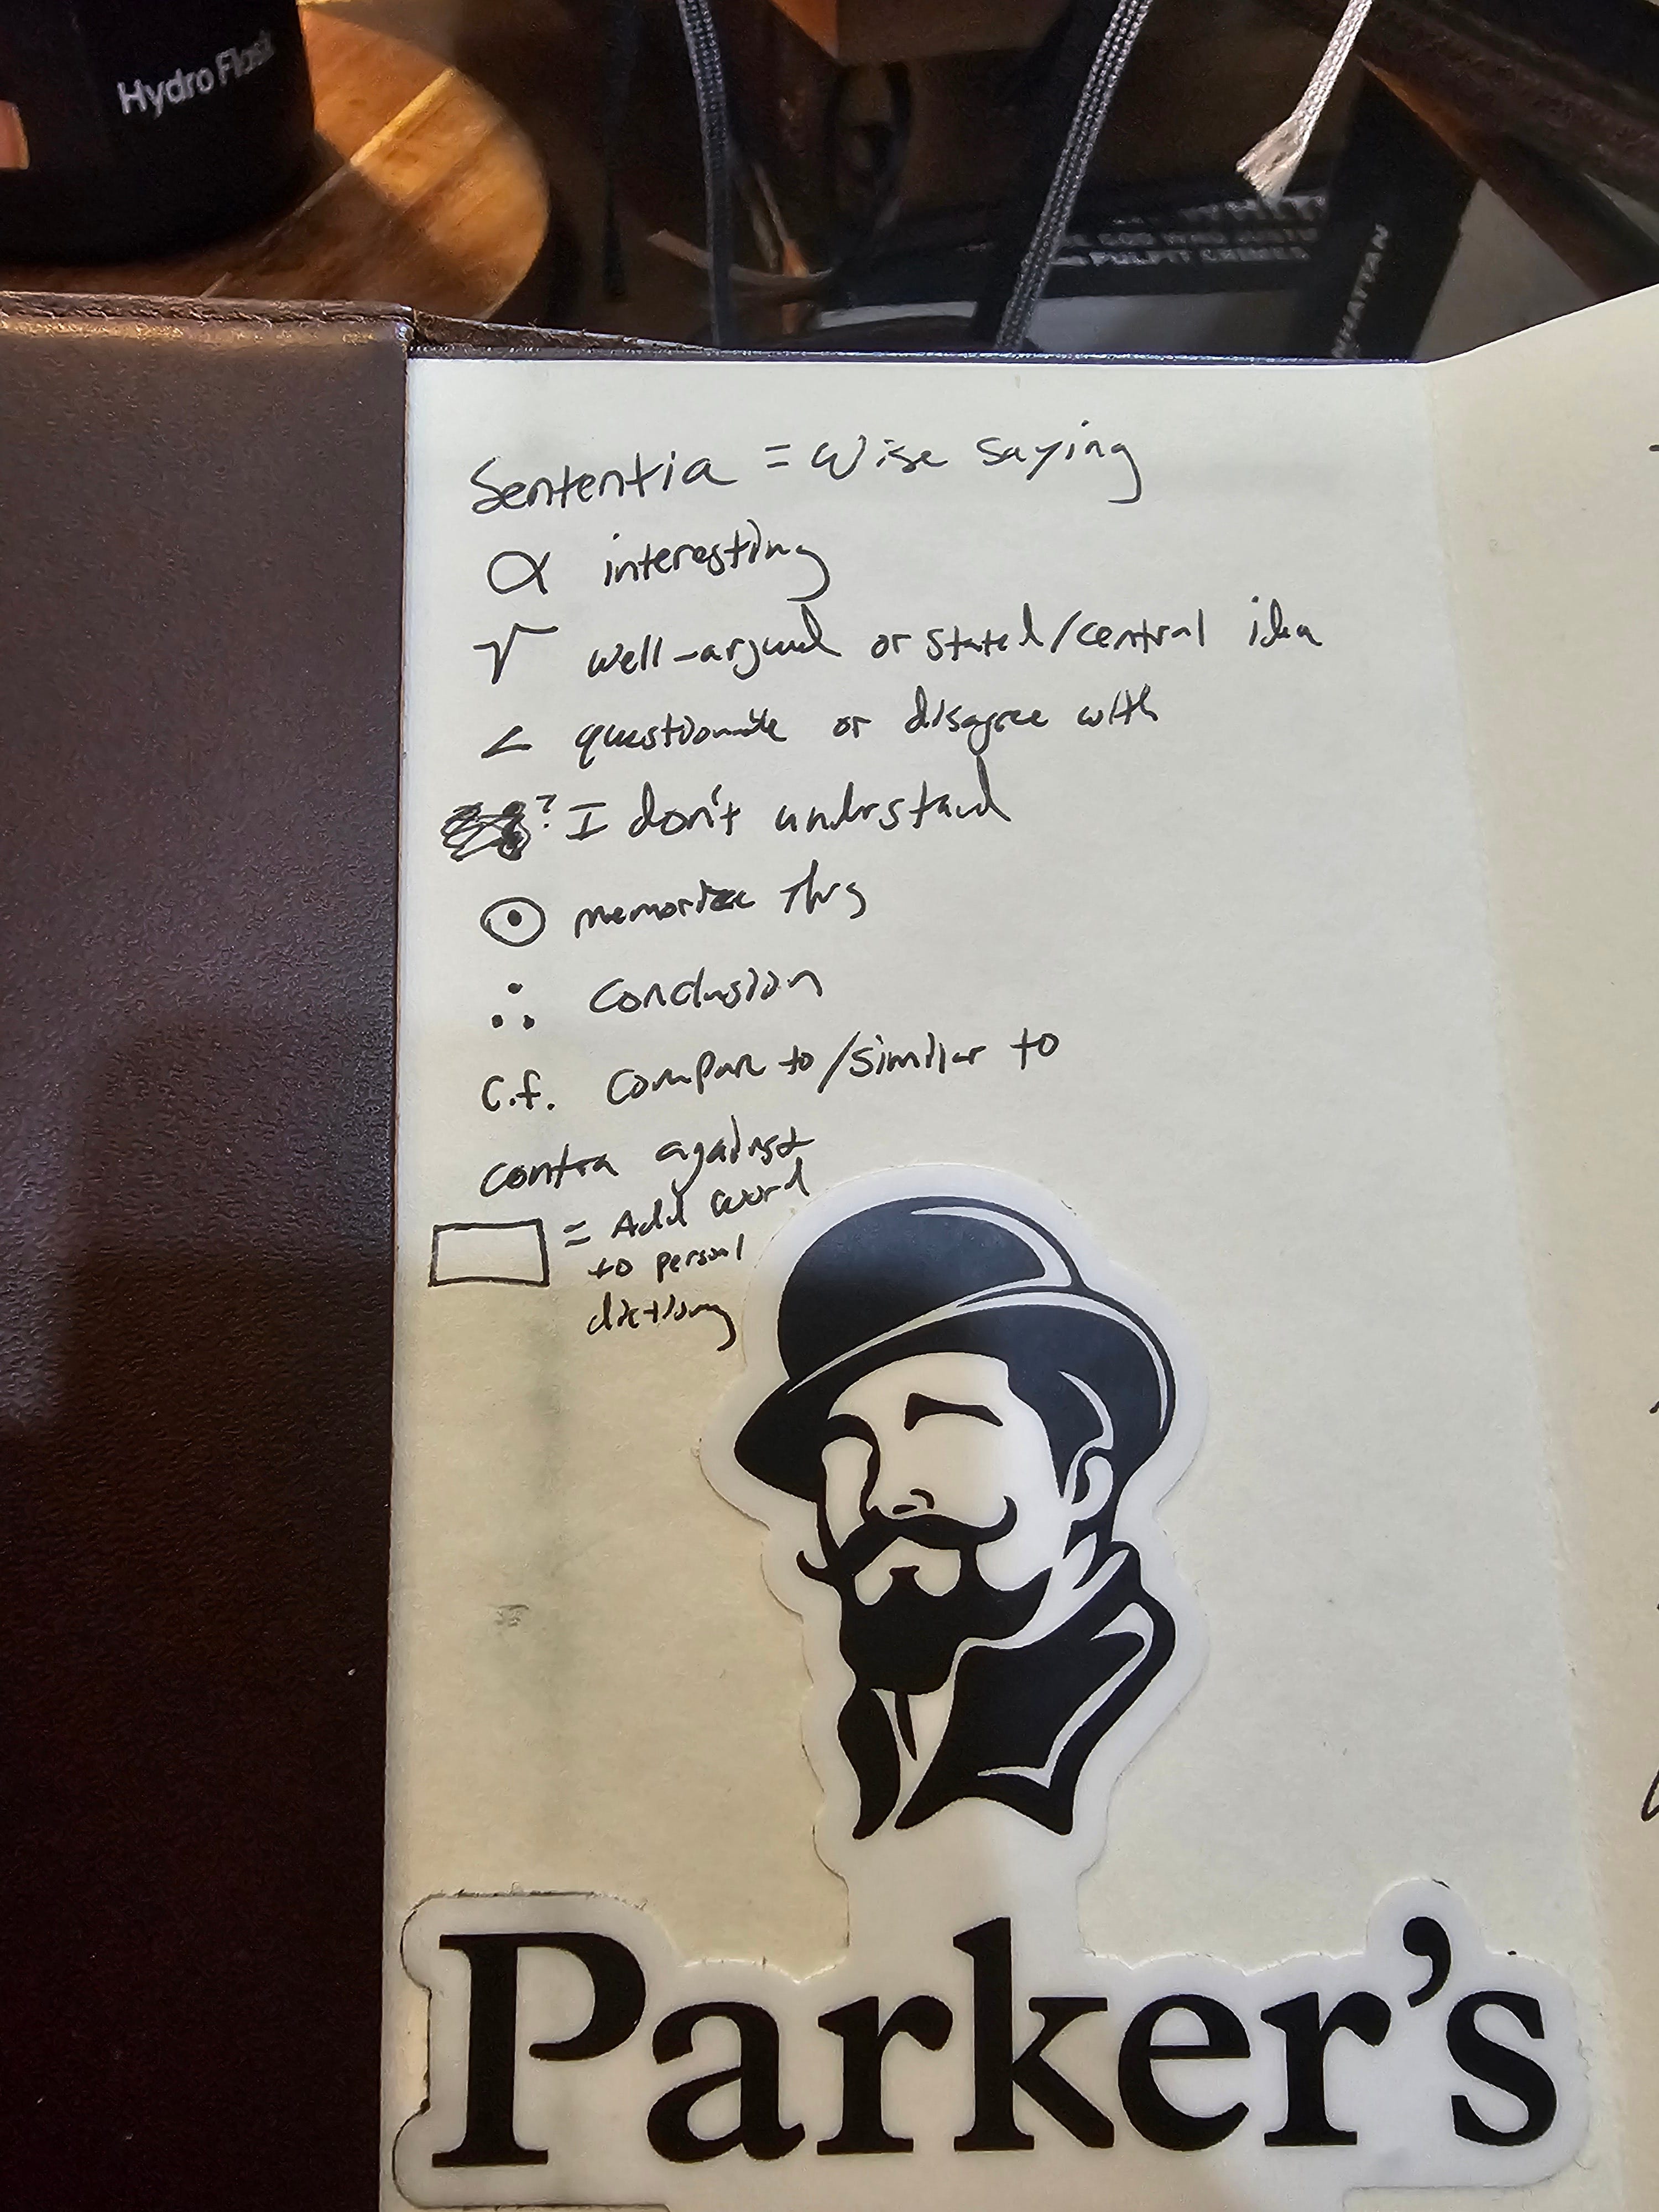 Hydro Flask
PULPIT CRIMES
Sententia = Wise saying
α interesting
√ well-argued or stated/central idea
< questionable or disagree with
? I don't understand
⊙ memorize this
∴ conclusion
c.f. compare to/similar to
contra against
= Add word
to personal
dictionary
Parker's